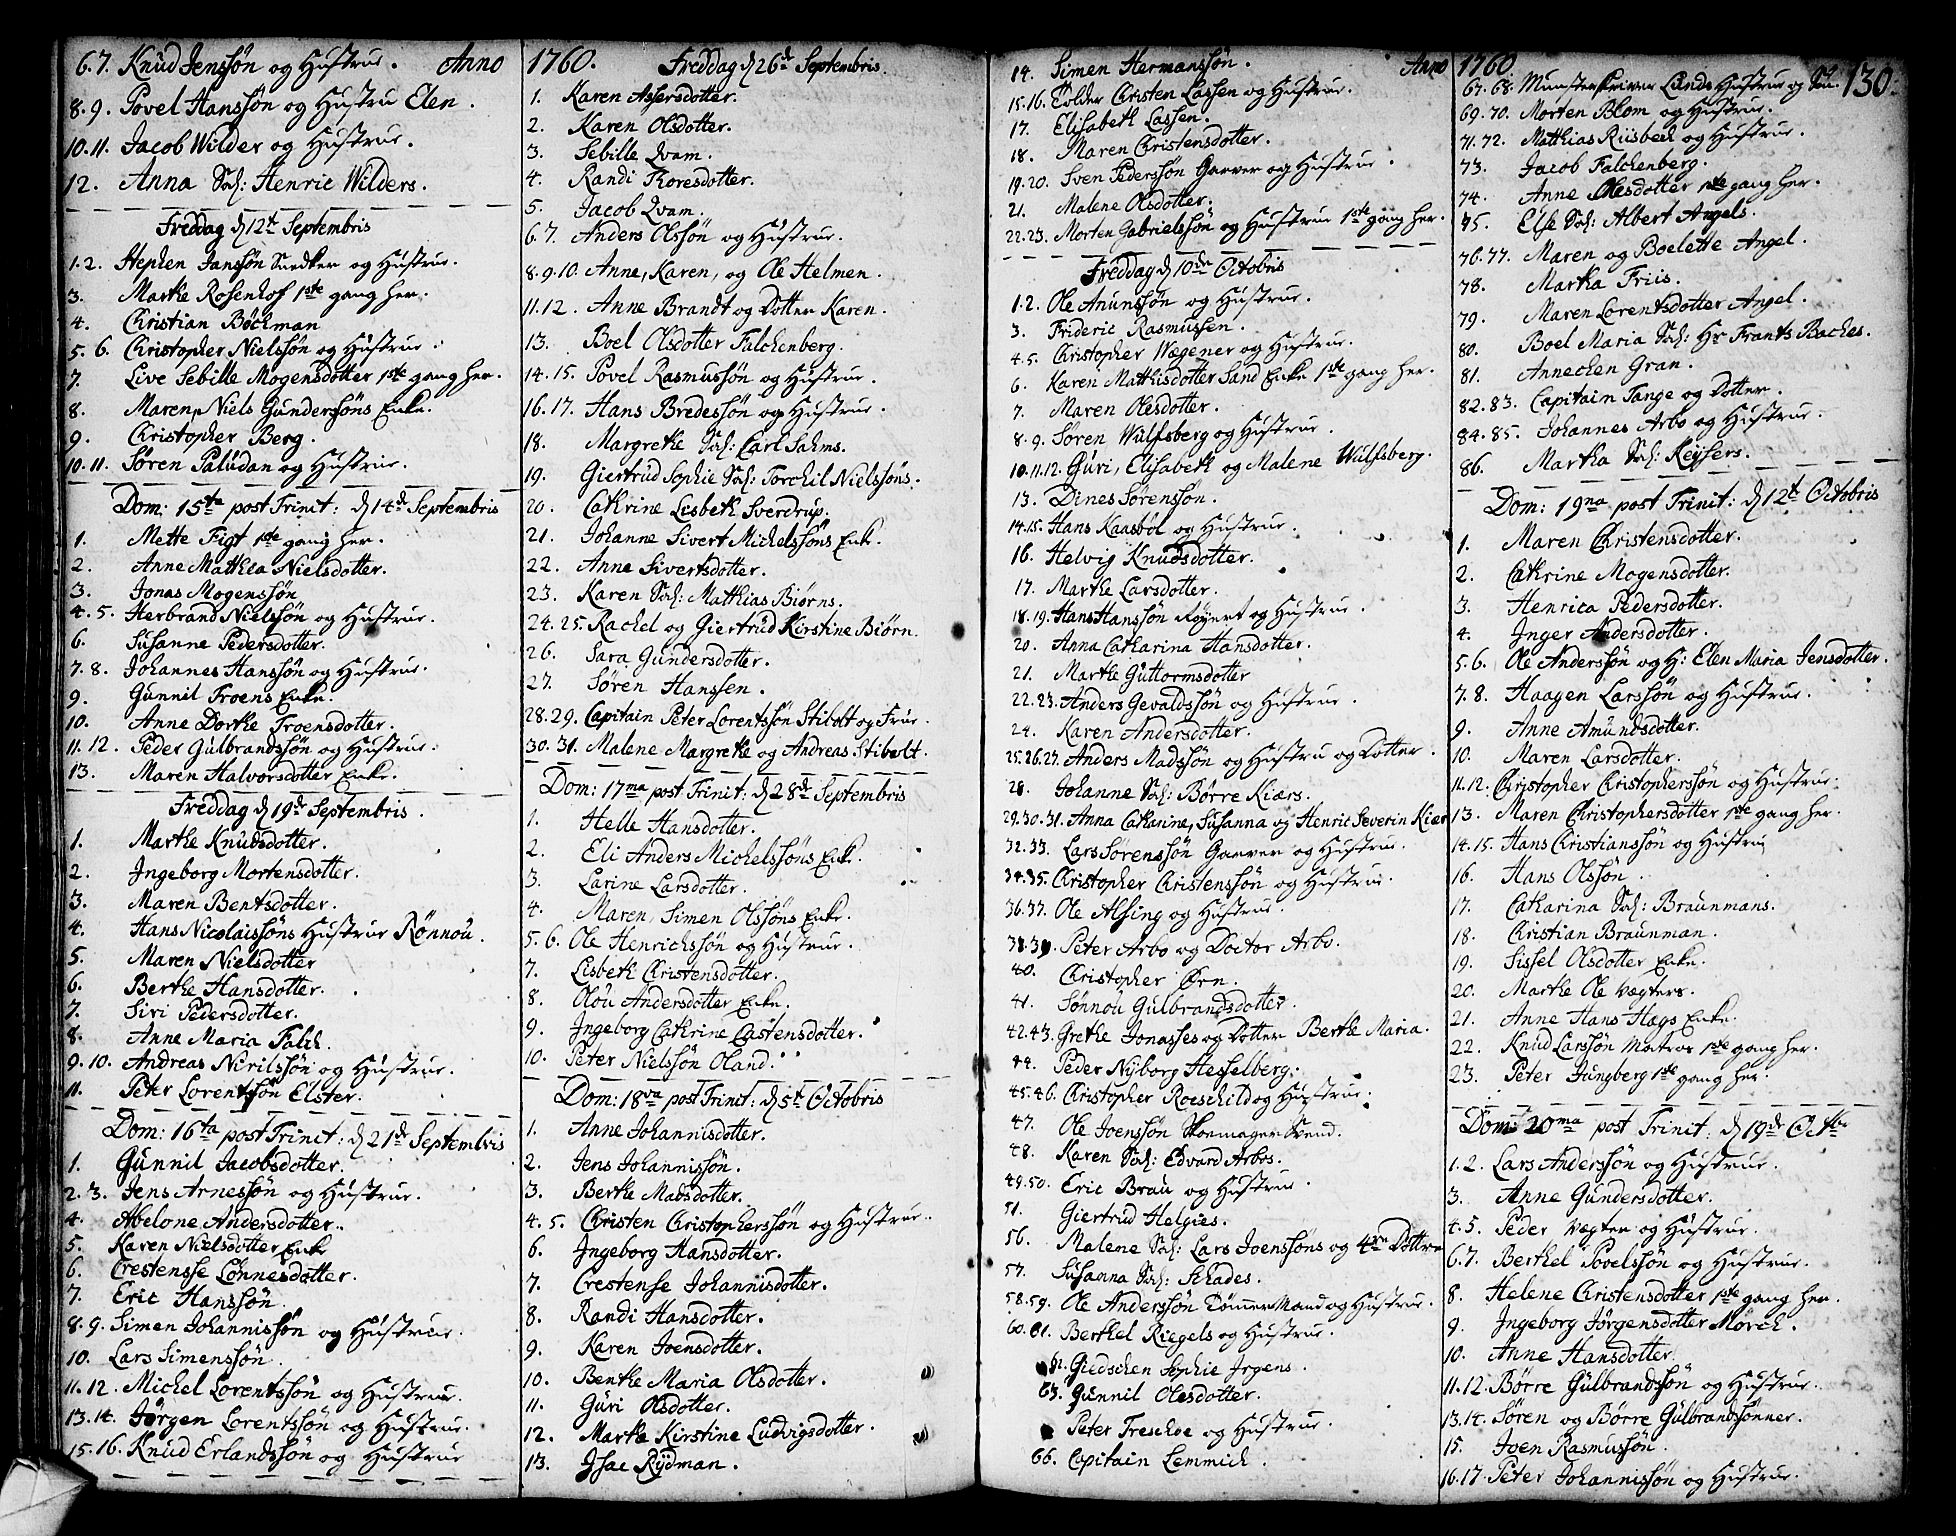 6.7. Knud Jenssön og Hustrue. Anno
8.9. Povel Hanssön og Hustru Elen.
10.11. Jacob Wilder og Hustrue.
12. Anna Sal: Henric Wilders.
Freddag d 12te Septembris
1.2. Stephen Janssön Snedker og Hustrue.
3. Marthe Rosenhof 1ste gang her.
4. Christian Böckman
5.6. Christopher Nielssön og Hustrue.
7. Live Sebille Mogensdotter 1ste gang her.
8. Maren, Niels Gunderssöns Enke.
9. Christopher Berg.
10.11. Sören Paludan og Hustrue.
Dom: 15ta post Trinit: d 14de Septembris
1. Mette Figt 1ste gang her.
2. Anne Matthea Nielsdotter.
3. Jonas Mogenssön
4.5. Herbrand Nielssön og Hustrue.
6. Susanne Pedersdotter.
7.8. Johannes Hanssön og Hustrue.
9. Gunnil Froens Enke.
10. Anne Dorthe Froensdotter.
11.12. Peder Gulbrandssön og Hustrue.
13. Maren Halvorsdotter Enke.
Freddag d 19de Septembris.
1. Marthe Knudsdotter.
2. Ingeborg Mortensdotter.
3. Maren Bentsdotter.
4. Hans Nicolaissöns Hustrue Rönnou.
5. Maren Nielsdotter
6. Berthe Hansdotter.
7. Siri Pedersdotter.
8. Anne Maria Falch.
9.10. Andreas Nirilssön og Hustrue.
11. Peter Lorentssön Elster.
Dom: 16ta post Trinit: d 21de Septembris
1. Gunnil Jacobsdotter.
2.3. Jens Arnessön og Hustrue.
4. Abelone Andersdotter.
5. Karen Nielsdotter Enke
6. Crestensse Lönnesdotter.
7. Eric Hanssön.
8.9. Simen Johannissön og Hustrue.
10. Lars Simenssön.
11.12. Michel Lorentssön og Hustrue.
13.14. Jörgen Lorentssön og Hustrue.
15.16. Knud Erlandssön og Hustrue
1760. Freddag d 26de Septembris.
1. Karen Assersdotter.
2. Karen Olsdotter.
3. Sebille Qvam.
4. Randi Thoresdotter.
5. Jacob Qvam.
6.7. Anders Olssön og Hustrue.
8.9.10. Anne, Karen, og Ole Helmen.
11.12. Anne Brandt og Dotter Karen.
13. Boel Olsdotter Falchenberg.
14.15. Povel Rasmussön og Hustrue.
16.17. Hans Bredessön og Hustrue.
18. Margrethe Sal: Carl Sahms.
19. Giertrud Sophie Sal: Torchil Nielssöns.
20. Cathrine Lisbeth Sverdrup.
21. Johanne Sivert Michelssöns Enk.
22. Anne Sivertsdotter.
23. Karen Sal: Matthias Biørns.
24.25. Rachel og Giertrud Kirstine Biørn.
26. Sara Gundersdotter.
27. Sören Hanssen.
28.29. Capitain Peter Lorentssön Stiboldt og Frue.
30.31. Malene Margrethe og Andreas Stibolt.
Dom: 17ma post Trinit: d 28de Septembris
1. Helle Hansdotter.
2. Eli Anders Michelssöns Enk.
3. Larine Larsdotter.
4. Maren, Simen Olssöns Enke.
5.6. Ole Henrichssön og Hustrue.
7. Lisbeth Christensdotter.
8. Olou Andersdotter Enke.
9. Ingeborg Cathrine Castensdotter.
10. Peter Nielssön Oland.
Dom: 18va post Trinit: d 5te Octobris
1. Anne Johannisdotter.
2. Jens Johannissön.
3. Berthe Madsdotter.
4.5. Christen Christopherssön og Hustrue.
6. Ingeborg Hansdotter.
7. Crestense Johannisdotter.
8. Randi Hansdotter.
9. Karen Joensdotter.
10. Benthe Maria Olsdotter.
11. Guri Olsdotter.
12. Marthe Kirstine Ludvigsdotter.
13. Isac Rydman.
14. Simen Hermanssön. Anno
15.16. Tolder Christen Lassen og Hustrue.
17. Elisabeth Lassen.
18. Maren Christensdotter.
19.20. Sven Pederssön Garver og Hustrue.
21. Malene Olsdotter.
22.23. Morten Gabrielssön og Hustrue 1ste gang her.
Freddag d 10de Octobris
1.2. Ole Anunssön og Hustrue.
3. Frideric Rasmussen.
4.5. Christopher Wægener og Hustrue.
6. Karen Matthisdotter Sand Enke 1ste gang her.
7. Maren Olesdotter.
8.9. Søren Wulfsberg og Hustrue.
10.11.12. Guri, Elisabeth og Malene Wulfsberg.
13. Dines Sørenssøn.
14.15. Hans Kaasböl og Hustrue.
16. Helvig Knudsdotter.
17. Marthe Larsdotter.
18.19. Hans Hanssön Röyert og Hustrue.
20. Anna Catharina Hansdotter.
21. Marthe Guttormsdotter
22.23. Anders Gevaldssön og Hustrue.
24. Karen Andersdotter.
25.26.27. Anders Madssön og Hustru og Dotter.
28. Johanne Sal: Børre Kiærs.
29.30.31. Anna Catharine, Susanna og Henric Severin Kiær
32.33. Lars Sörenssön Garver og Hustrue.
34.35. Christopher Christenssön og Hustrue.
36.37. Ole Alsing og Hustrue.
38.39. Peter Arbo og Doctor Arbo.
40. Christopher Ørn.
41. Sönnou Gulbrandsdotter.
42.43. Grethe Jonasses og Dotter Berthe Maria.
44. Peder Nyborg Hesselberg.
45.46. Christopher Roeschild og Hustrue.
47. Ole Joenssön Skoemager Svend.
48. Karen Sal: Edvard Arbos.
49.50. Eric Brau og Hustrue.
51. Giertrud Helgies.
56. Malene Sal: Lars Joenssöns og 4re Döttre
57. Susanna Sal: Schades.
58.59. Ole Anderssön TömmerMand og Hustrue.
60.61. Berthel Riegels og Hustrue.
62. Giedschen Sophie Irgens.
63. Gunnil Olesdotter.
Peter Treschoe og Hustrue.
66. Capitain Lemmich.
1760 130.
67.68. Munsterskriver Lunds Hustrue og
69.70. Morten Blom og Hustrue.
71.72. Matthias Riisbech og Hustrue.
73. Jacob Falchenberg.
74. Anne Olesdotter 1ste gang her.
75. Else Sal: Albert Angels.
76.77. Maren og Boelette Angel.
78. Martha Friis.
79. Maren Lorentsdotter Angel.
80. Boel Maria Sal: Hr Frants Baches.
81. Annechen Gran.
82.83. Capitain Tange og Dotter.
84.85. Johannes Arbo og Hustrue.
86. Martha Sal: Keysers.
Dom: 19na post Trinit: d 12te Octobris
1. Maren Christensdotter.
2. Cathrine Mogensdotter.
3. Henrica Pedersdotter.
4. Inger Andersdotter.
5.6. Ole Anderssön og H: Elen Maria Jensdotter.
7.8. Haagen Larssön og Hustrue.
9. Anne Amundsdotter.
10. Maren Larsdotter.
11.12. Christopher Christopherssön og Hustrue.
13. Maren Christophersdotter 1ste gang her.
14.15. Hans Christianssön og Hustrue
16. Hans Olssön.
17. Catharina Sal: Braunmans.
18. Christian Braunman.
19. Sissel Olsdotter Enke.
20. Marthe Ole Vægters.
21. Anne Hans Hags Enke.
22. Knud Larssön Matros 1ste gang her.
23. Peter Jungberg 1ste gang her.
Dom: 20ma post Trinit: d 19de Octbr
1.2. Lars Anderssön og Hustrue.
3. Anne Gundersdotter.
4.5. Peder Vægter og Hustrue.
6.7. Berthel Povelssön og Hustrue.
8. Helene Christensdotter 1ste gang her.
9. Ingeborg Jörgensdotter Mörch.
10. Anne Hansdotter.
11.12. Börre Gulbrandssön og Hustrue.
13.14. Sören og Börre Gulbrandsönner.
15. Joen Rasmussön.
16.17. Peter Johannissön og Hustrue.